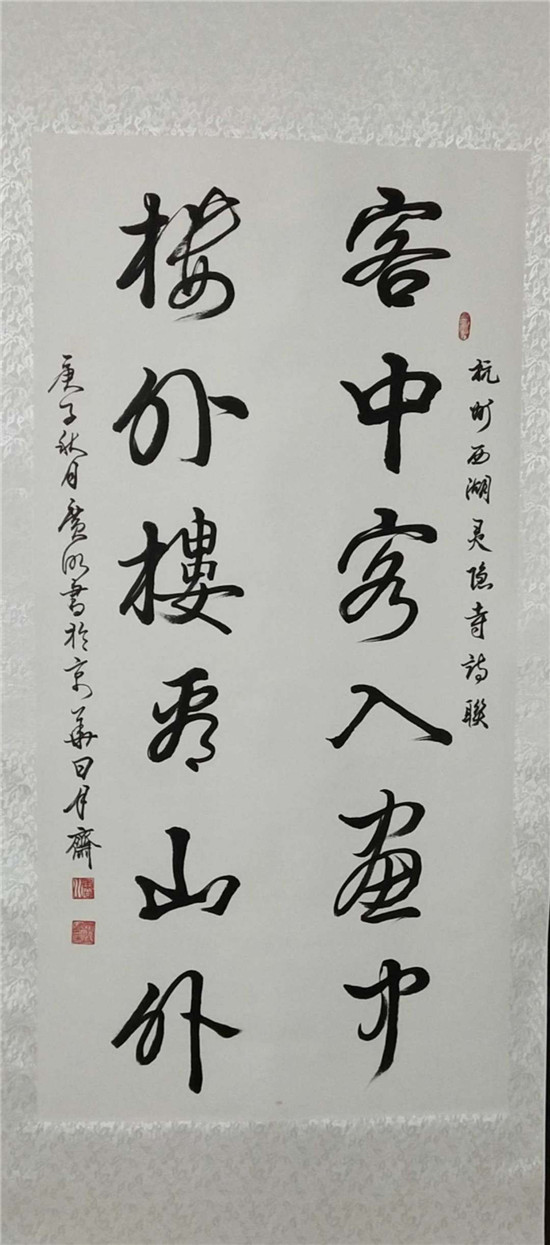 杭州西湖灵隐寺詩聯
客中客入畫中
楼外樓看山外
庚子秋月廣明書於京華日月齋